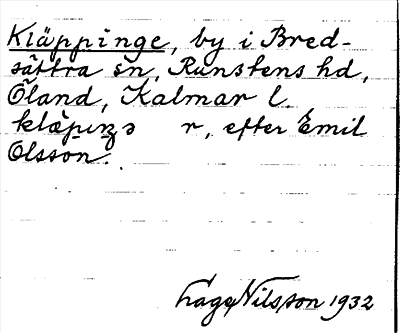 Kläppinge, by i Bred-
sättra sn, Runstens hd,
Öland, Kalmar l.
r, efter Emil
Olsson.
Lage Nilsson 1932